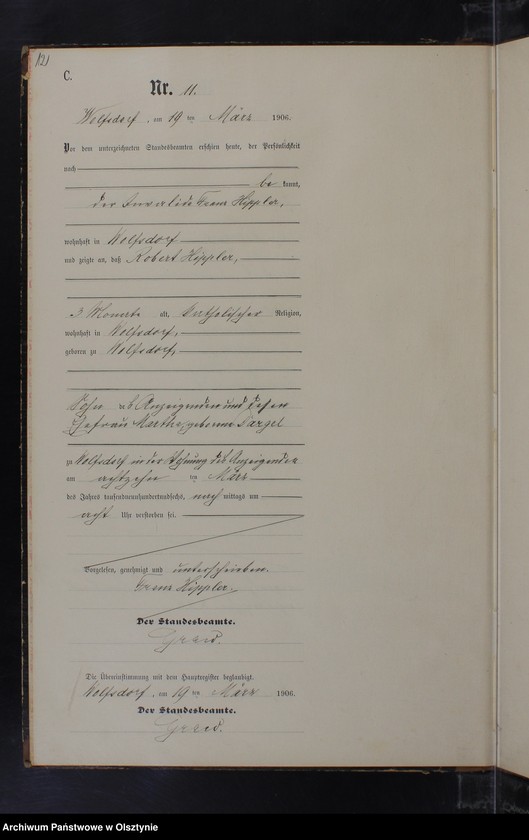 121
C.
Nr. 11.
Wolfsdorf, am 19 ten März 1906.
Vor dem unterzeichneten Standesbeamten erschien heute, der Persönlichkeit
nach
be kannt,
der Invalide Franz Hippler,
wohnhaft in Wolfsdorf
und zeigte an, daß Robert Hippler,
3 Monate alt, katholischer Religion,
wohnhaft in Wolfsdorf,
geboren zu Wolfsdorf,
Sohn des Anzeigenden und dessen
Ehefrau Martha, geborene Dargel
zu Wolfsdorf in der Wohnung des Anzeigenden
am achtzehn ten März
des Jahres tausendneunhundertundsechs, nach mittags um
acht Uhr verstorben sei.
Vorgelesen, genehmigt und unterschrieben.
Franz Hippler.
Der Standesbeamte.
Die Übereinstimmung mit dem Hauptregister beglaubigt.
Wolfsdorf, am 19 ten März 1906.
Der Standesbeamte.
Archiwum Państwowe w Olsztynie